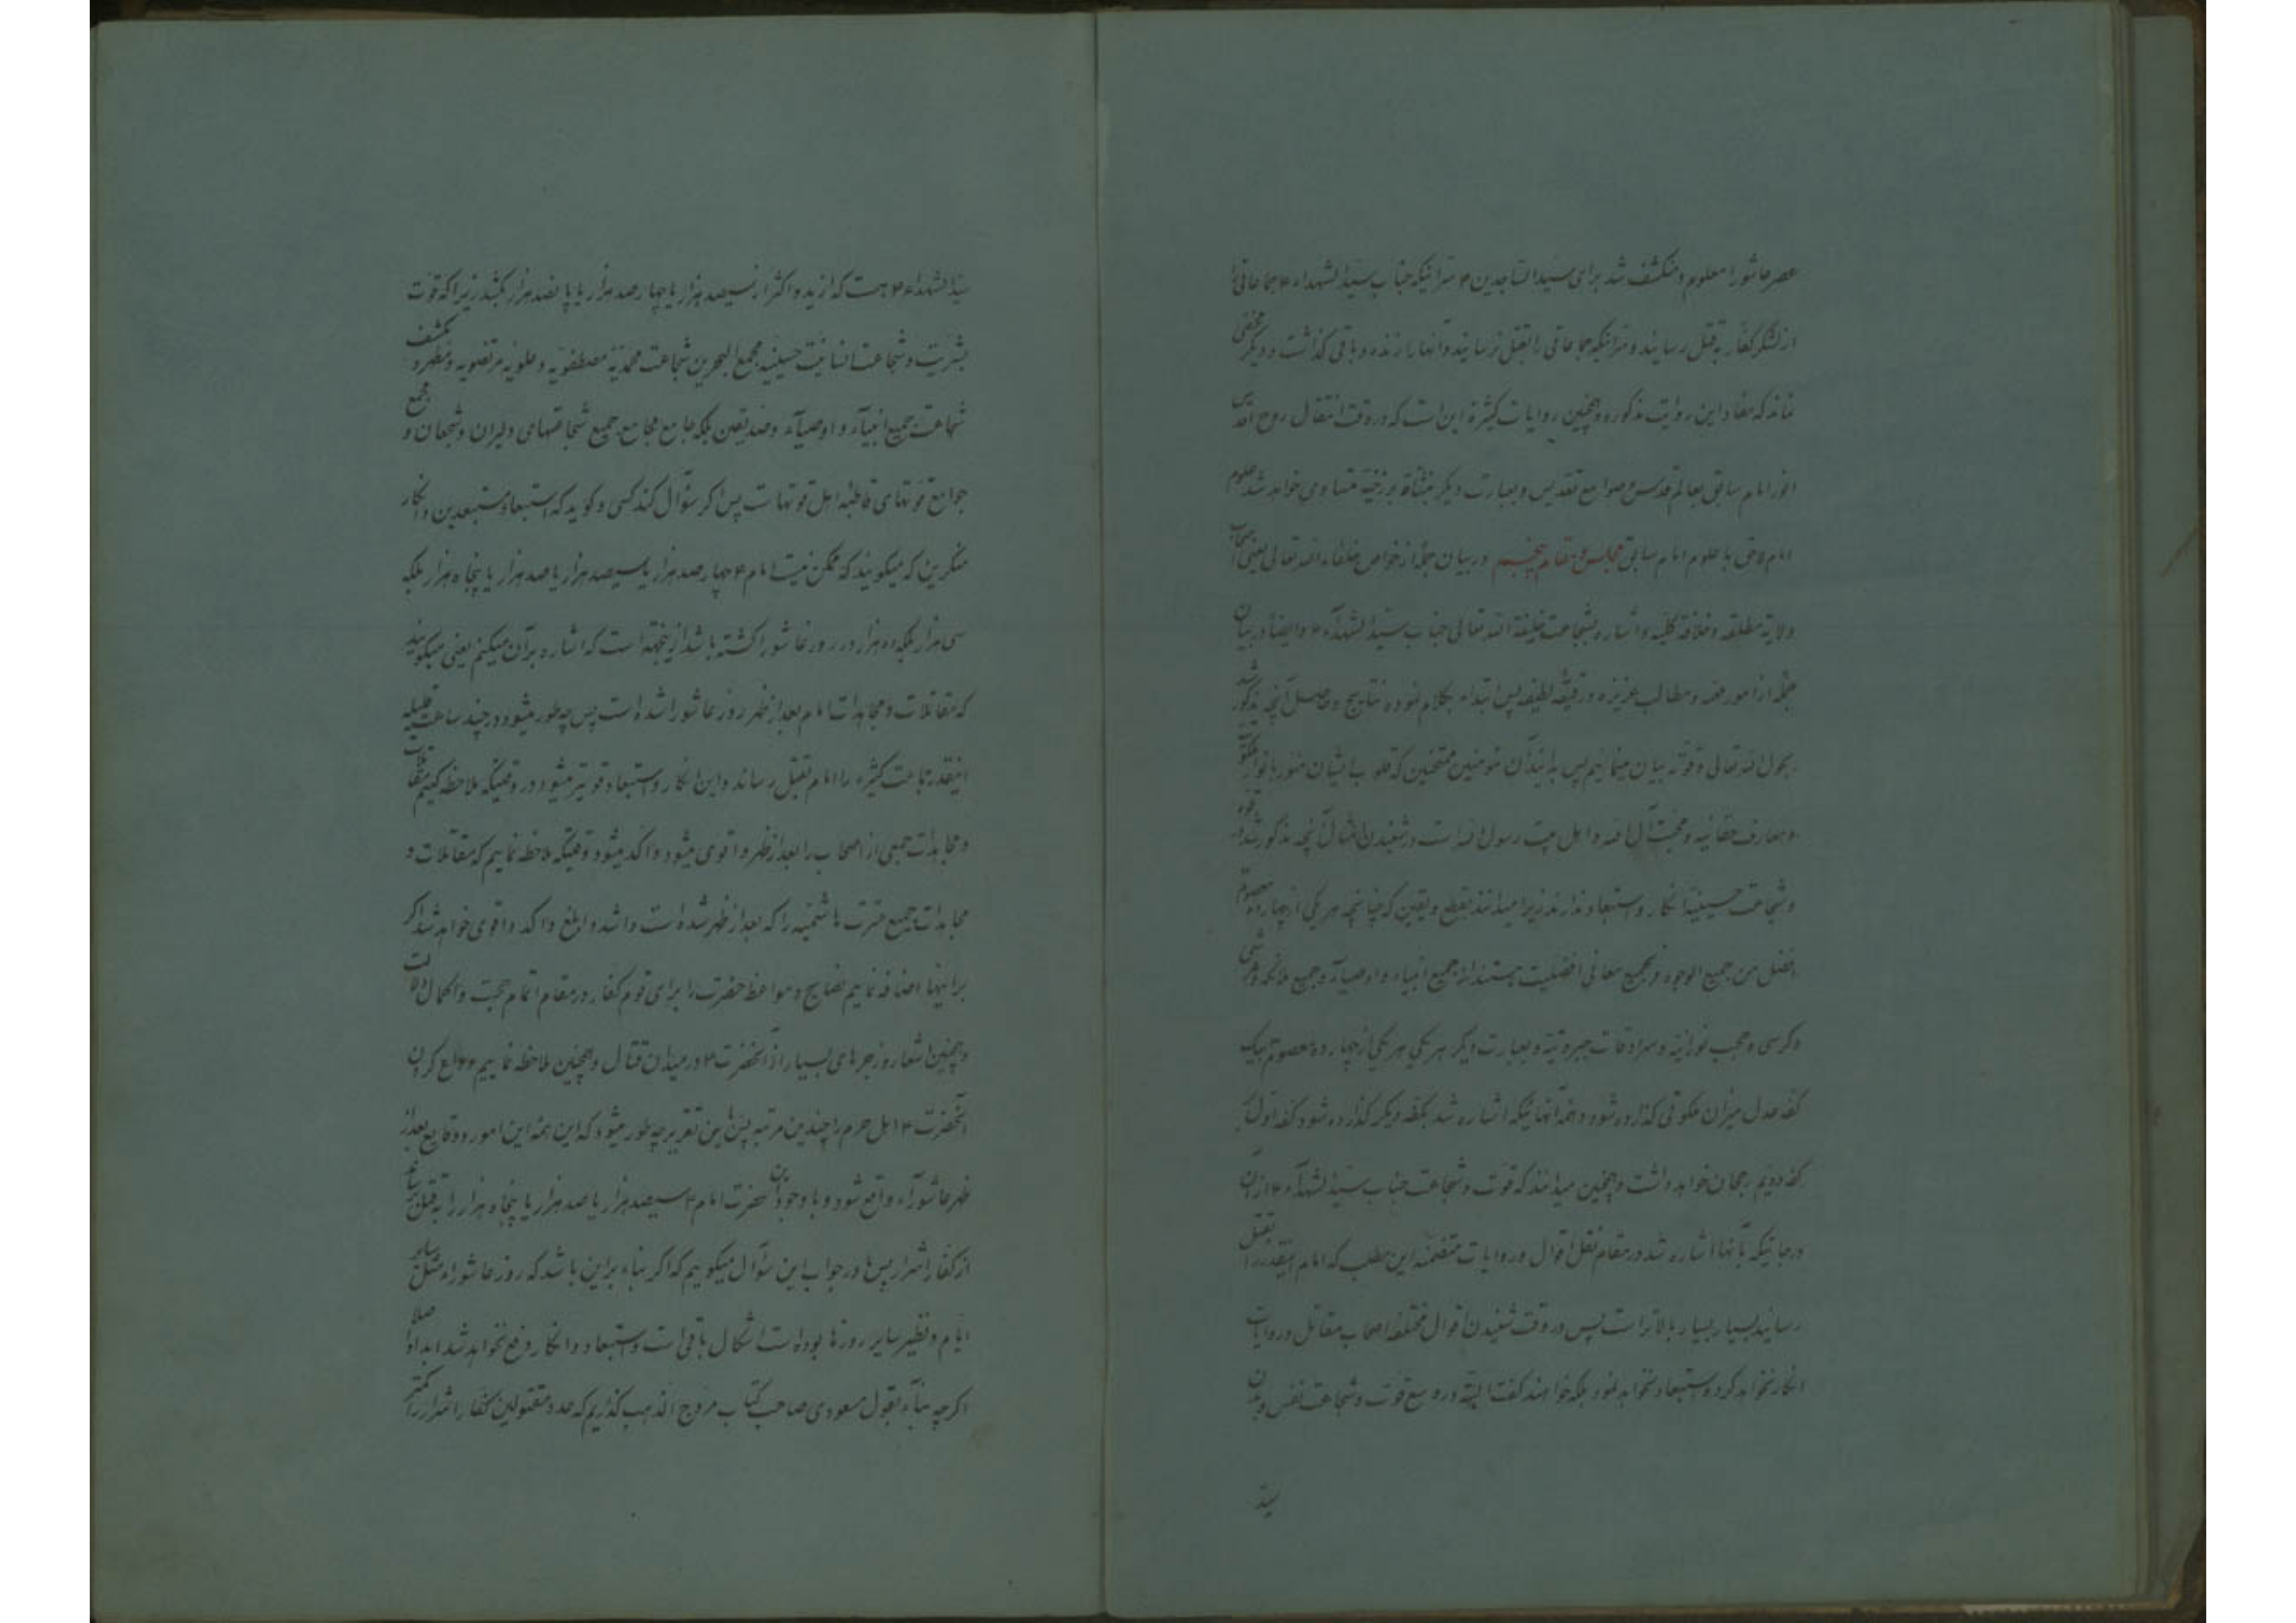 عصر عاشورا معلوم و منکشف شد برای سید الساجدین ۴ سر اینکه جناب سید الشهداء ۴ جماعاتی را
از لشکر کفار به قتل رسانیدند و سر اینکه جماعاتی را بقتل نرسانیدند و آنها را زنده و باقی گذاشت و دیگر مخفی
نماند که مفاد این روایت مذکوره و همچنین روایات کثیرة این است که در وقت انتقال روح اقدس
انور امام سابق بعالم قدس و صوامع تقدیس و بعبارت دیگر بنشأة برزخیة متساوی خواهد شد علوم
امام لاحق با علوم امام سابق مجلس و مقام پنجم در بیان جملة از خواص خلفاء الله تعالی یعنی اصحاب
ولایة مطلقه و خلافة کلیه و اشاره بشجاعت خلیفة الله تعالی جناب سید الشهدآء ۴ و ایضا در بیان
جملة از امور مهمه و مطالب عزیزه و دقیقه لطیفه پس ابتداء بکلام نموده نتایج و حاصل آنچه مذکور شد
بحول الله تعالی و قوته بیان مینمائیم پس بدانید آن مؤمنین ممتحنین که قلوب ایشان منور بانوار
و معارف حقانیه و محبت آل الله و اهل بیت رسول الله است در شنیدن امثال آنچه مذکور شد از قوه
و شجاعت حسینیة انکار و استبعاد ندارند زیرا میدانند بقطع و یقین که چنانچه هر یکی از چهارده معصوم
افضل من جمیع الوجوه و بجمیع معانی افضلیت هستند از جمیع انبیاء و اوصیآء و جمیع ملائکه و عرش
و کرسی و حجب نورانیه و سرادقات جبروتیة و بعبارت دیگر هر یکی هر یکی از چهارده معصوم بیک
کفه عدل میزان ملکوتی گذارده شود و همه آنهائیکه اشاره شد بکفه دیگر گذارده شود کفه اول بر
کفه دویم رجحان خواهد داشت و همچنین میدانند که قوت و شجاعت جناب سید الشهدآء ۴ از آن
درجاتیکه بآنها اشاره شد در مقام نقل اقوال و روایات متضمنه این مطلب که امام اینقدر را بقتل
رسانید بسیار بسیار بالاتر است پس در وقت شنیدن اقوال مختلفه اصحاب مقاتل و روایات
انکار نخواهند کرد و استبعاد نخواهند نمود بلکه خواهند گفت البته در وسع قوت و شجاعت نفس و بدن
سید
سید الشهداء ۴ هست که ازید و اکثر از سیصد هزار یا چهار صد هزار یا پانصد هزار بکشد زیرا که قوت
بشریت و شجاعت انسانیت حسینیه مجمع البحرین شجاعت محمدیة مصطفویه و علویه مرتضویه و مظهر و کشف
شجاعت جمیع انبیآء و اوصیآء و صدیقین بلکه جامع مجامع جمیع شجاعتهای دلیران و شجعان و مجمع
جوامع قوتهای قاطبه اهل قوتهاست پس اگر سؤال کند کسی و گوید که استبعاد مستبعدین و انکار
منکرین که میگویند که ممکن نیست امام ۴ چهار صد هزار یا سیصد هزار یا صد هزار یا پنجاه هزار بلکه
سی هزار بلکه ده هزار در روز عاشورا کشته باشد از اینجهة است که اشاره برآن میکنم یعنی میگویند
که مقاتلات و مجاهدات امام بعد از ظهر روز عاشورا شده است پس چه طور میشود در چند ساعت قلیله
اینقدر جماعت کثیره را امام بقتل رساند و این انکار و استبعاد قویتر میشود در وقتیکه ملاحظه کنیم مقاتلات
و مجاهدات جمعی از اصحاب را بعد از ظهر و اقوی میشود و آکد میشود وقتیکه ملاحظه نماییم که مقاتلات و
مجاهدات جمیع عترت هاشمیه را که بعد از ظهر شده است و اشد و ابلغ و آکد و اقوی خواهد شد اگر
بر اینها اضافه نماییم نصایح و مواعظ حضرت را برای قوم کفار در مقام اتمام حجت و اکمال دلالت
و همچنین اشعار و رجزهای بسیار از آنحضرت ۴ در میدان قتال و همچنین ملاحظه نماییم وداع کردن
آنحضرت ۴ اهل حرم را چندین مرتبه پس باین تقریر چه طور میشود که این همه این امور و وقایع بعد از
ظهر عاشورآء واقع شود و با وجود این حضرت امام ۴ سیصد هزار یا صد هزار یا پنجاه هزار را بقتل رساند
از کفار اشرار پس ما در جواب این سؤال میگوییم که اگر بناء براین باشد که روز عاشوراء مثل سایر
ایام و نظیر سایر روزها بوده است اشکال باقی است و استبعاد و انکار رفع نخواهد شد ابدا و اصلا
اگر چه بنآء بقول مسعودی صاحب کتاب مروج الذهب گذاریم که عدد مقتولین کفار اشرار را کمتر